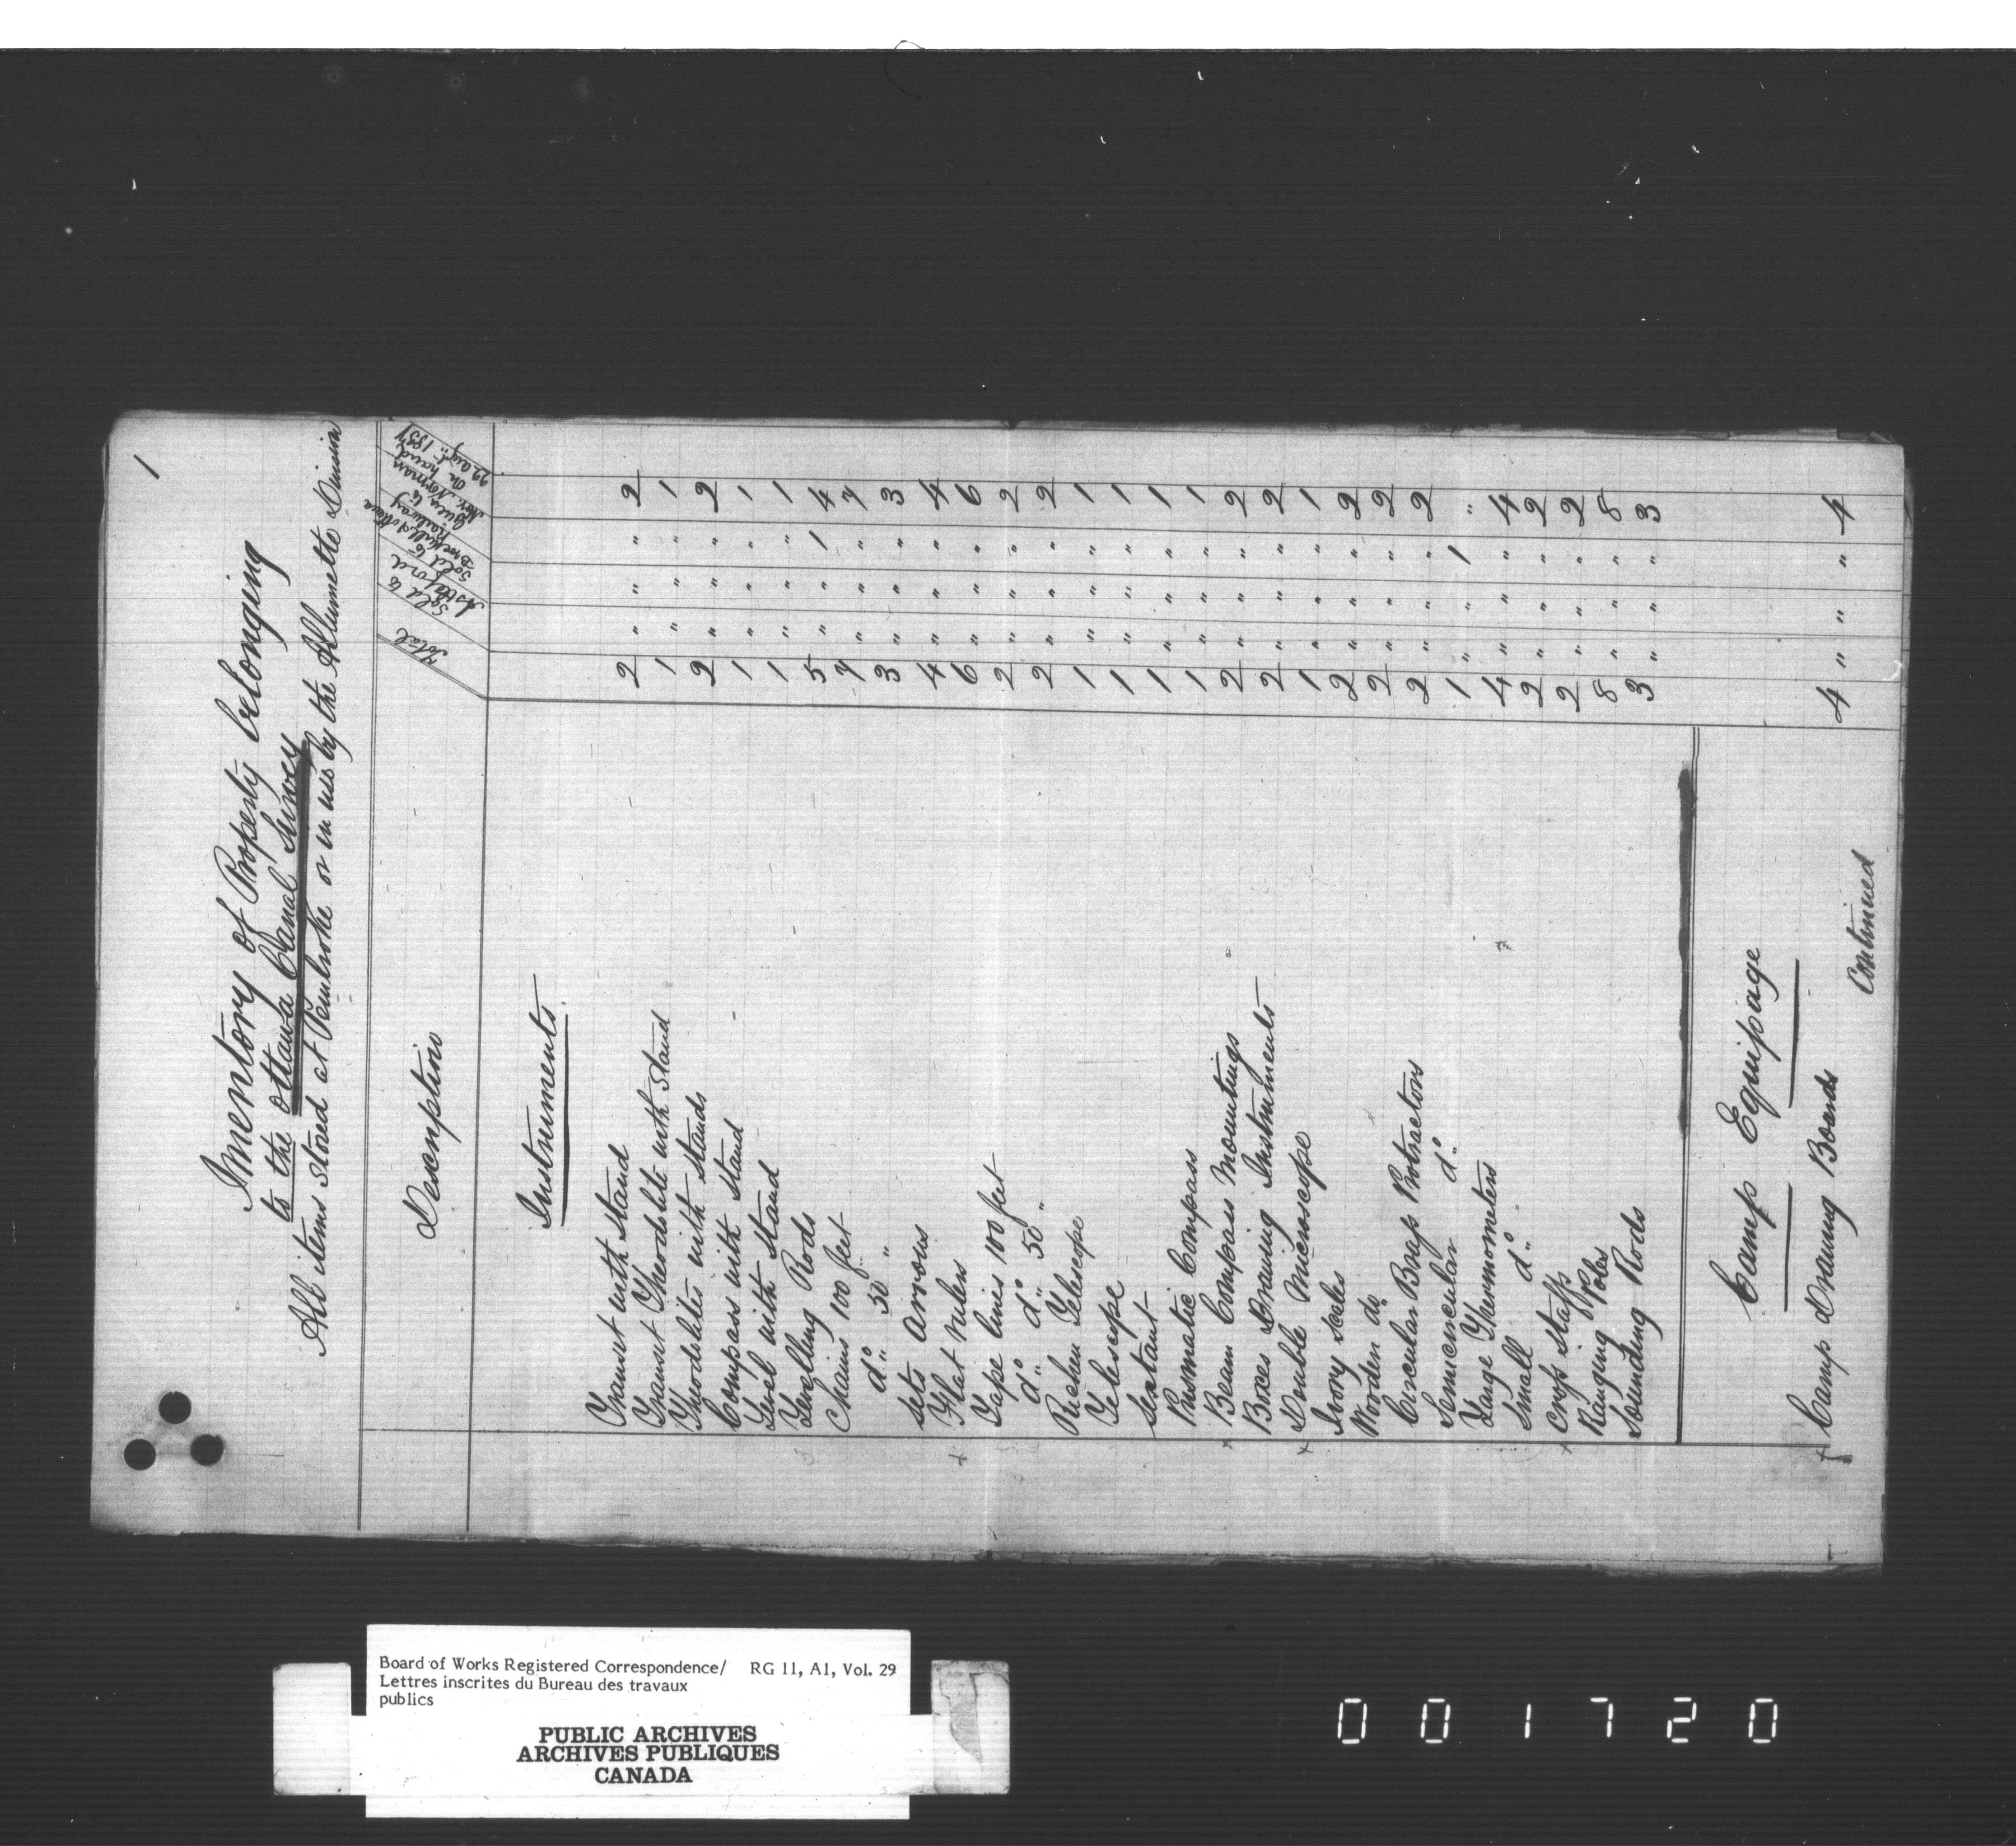 1
Inventory of Property belonging
to the Ottawa Canal Survey
All items stored at Pembroke or in use by the Allumette Division
Description Total Sold to Sold to Brockville & Ottawa Railway Given to Mr. Norman On hand 22 Augt. 1857
Instruments.
Transit with Stand 2 " " " 2
Transit Theodolite with Stand 1 " " " 1
Theodolites with Stands 2 " " " 2
Compass with Stand 1 " " " 1
Level with Stand 1 " " " 1
Levelling Rods 5 " " 1 4
Chains 100 feet 7 " " " 7
do. 50 " 3 " " " 3
Sets Arrows 4 " " " 4
+ Flat rulers 6 " " " 6
Tape lines 100 feet 2 " " " 2
do. do. 50 " 2 " " " 2
Telescope 1 " " " 1
Telescope 1 " " " 1
Sextant 1 " " " 1
Prismatic Compass 1 " " " 1
x Beam Compass Mountings 2 " " " 2
Boxes Drawing Instruments 2 " " " 2
x Double Microscope 1 " " " 1
Ivory scales 2 " " " 2
Wooden do. 2 " " " 2
Circular Brass Protractors 2 " " " 2
Semicircular do. 1 " " 1 "
Large Thermometers 4 " " " 4
Small do. 2 " " " 2
x Cross staffs 2 " " " 2
Ranging Poles 8 " " " 8
Sounding Rods 3 " " " 3
Camp Equipage
+ Camp Drawing Boards 4 " " " 4
Continued
Board of Works Registered Correspondence/ RG 11, A1, Vol. 29
Lettres inscrites du Bureau des travaux
publics
PUBLIC ARCHIVES
ARCHIVES PUBLIQUES
CANADA
001720